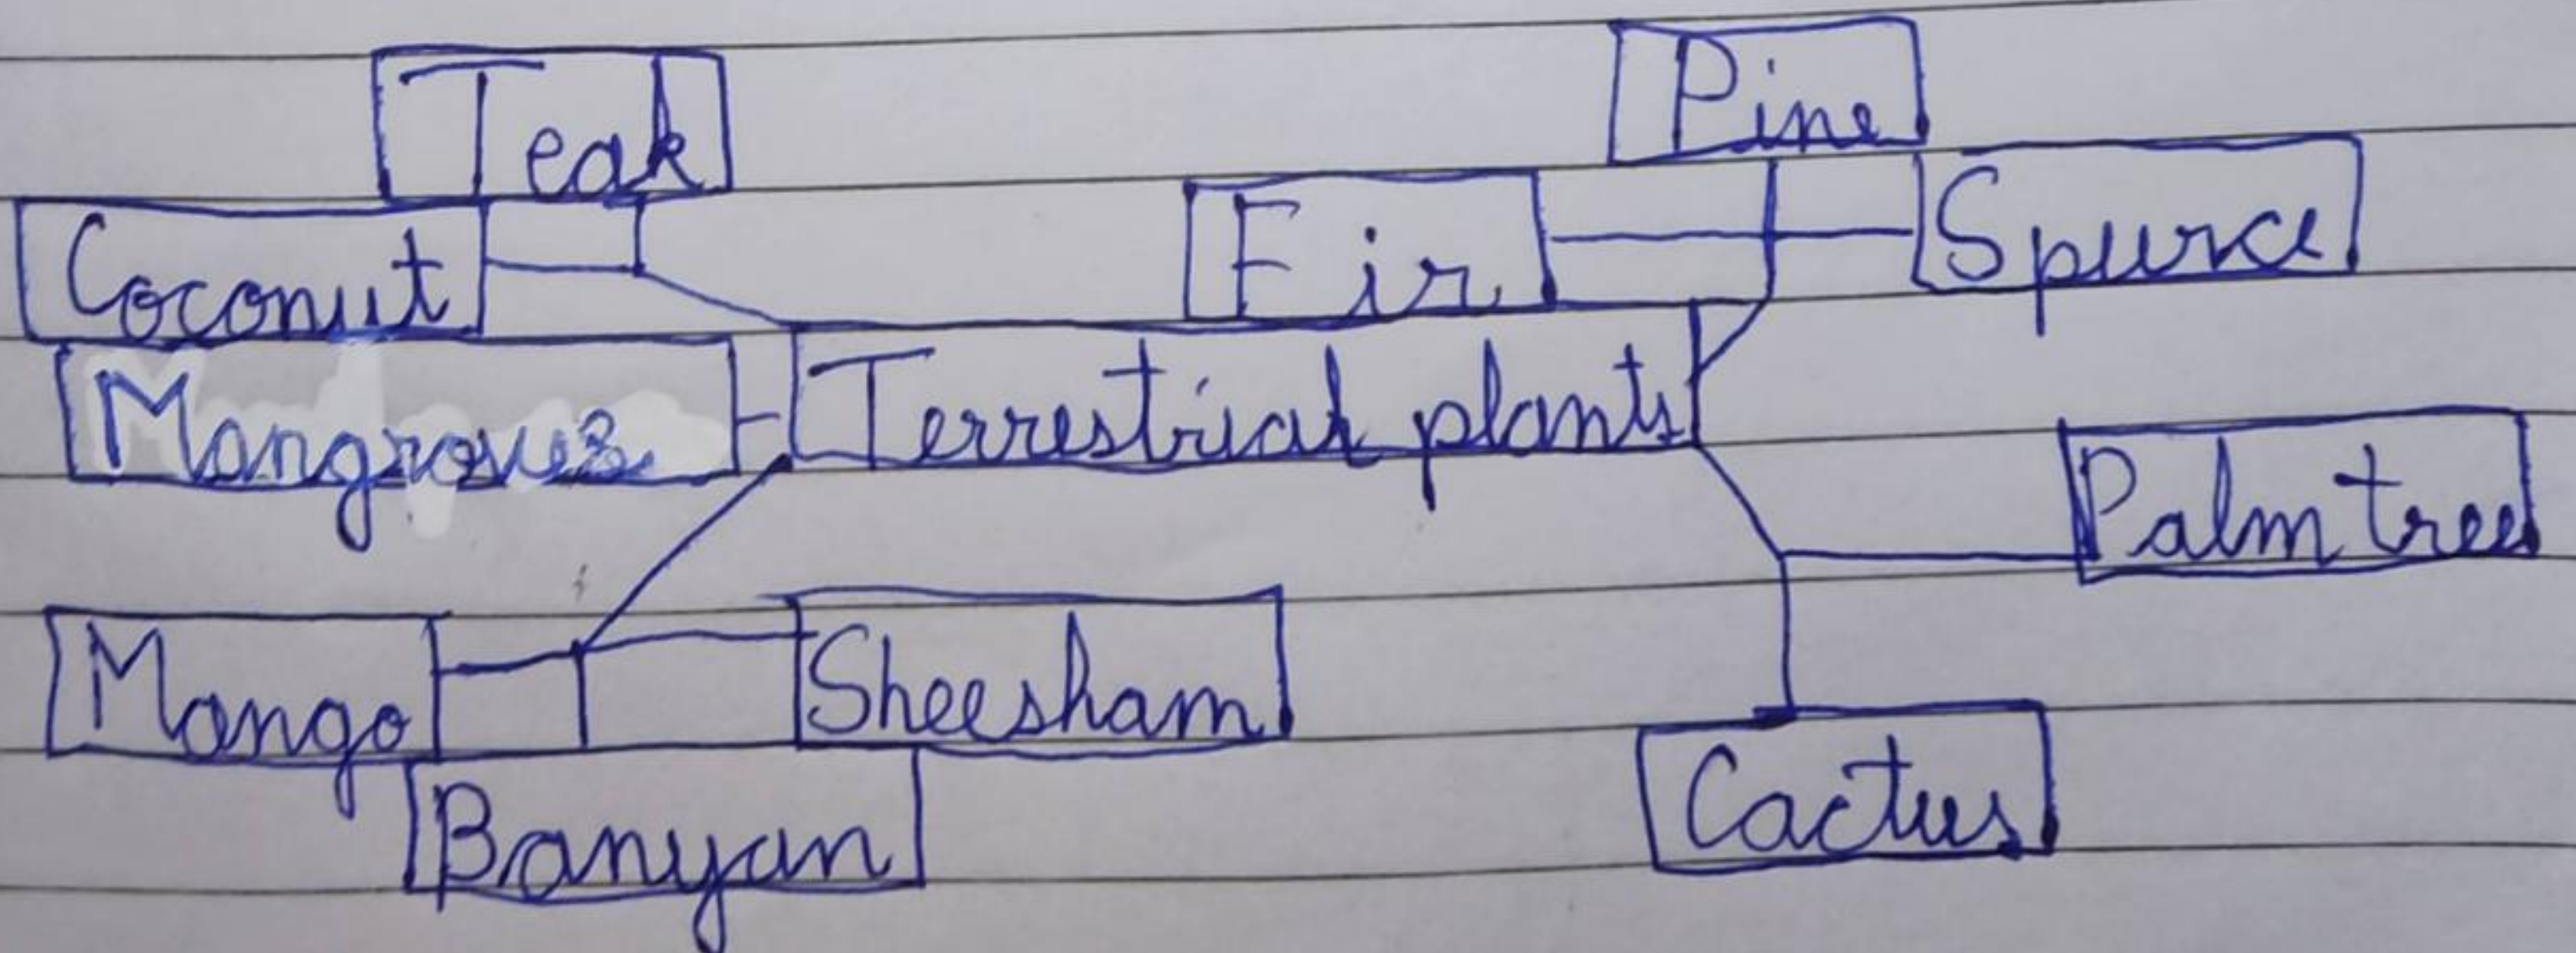 Teak
Pine
Coconut
Fir
Spurce
Mangroves
Terrestrial plants
Palm tree
Mango
Sheesham
Banyan
Cactus